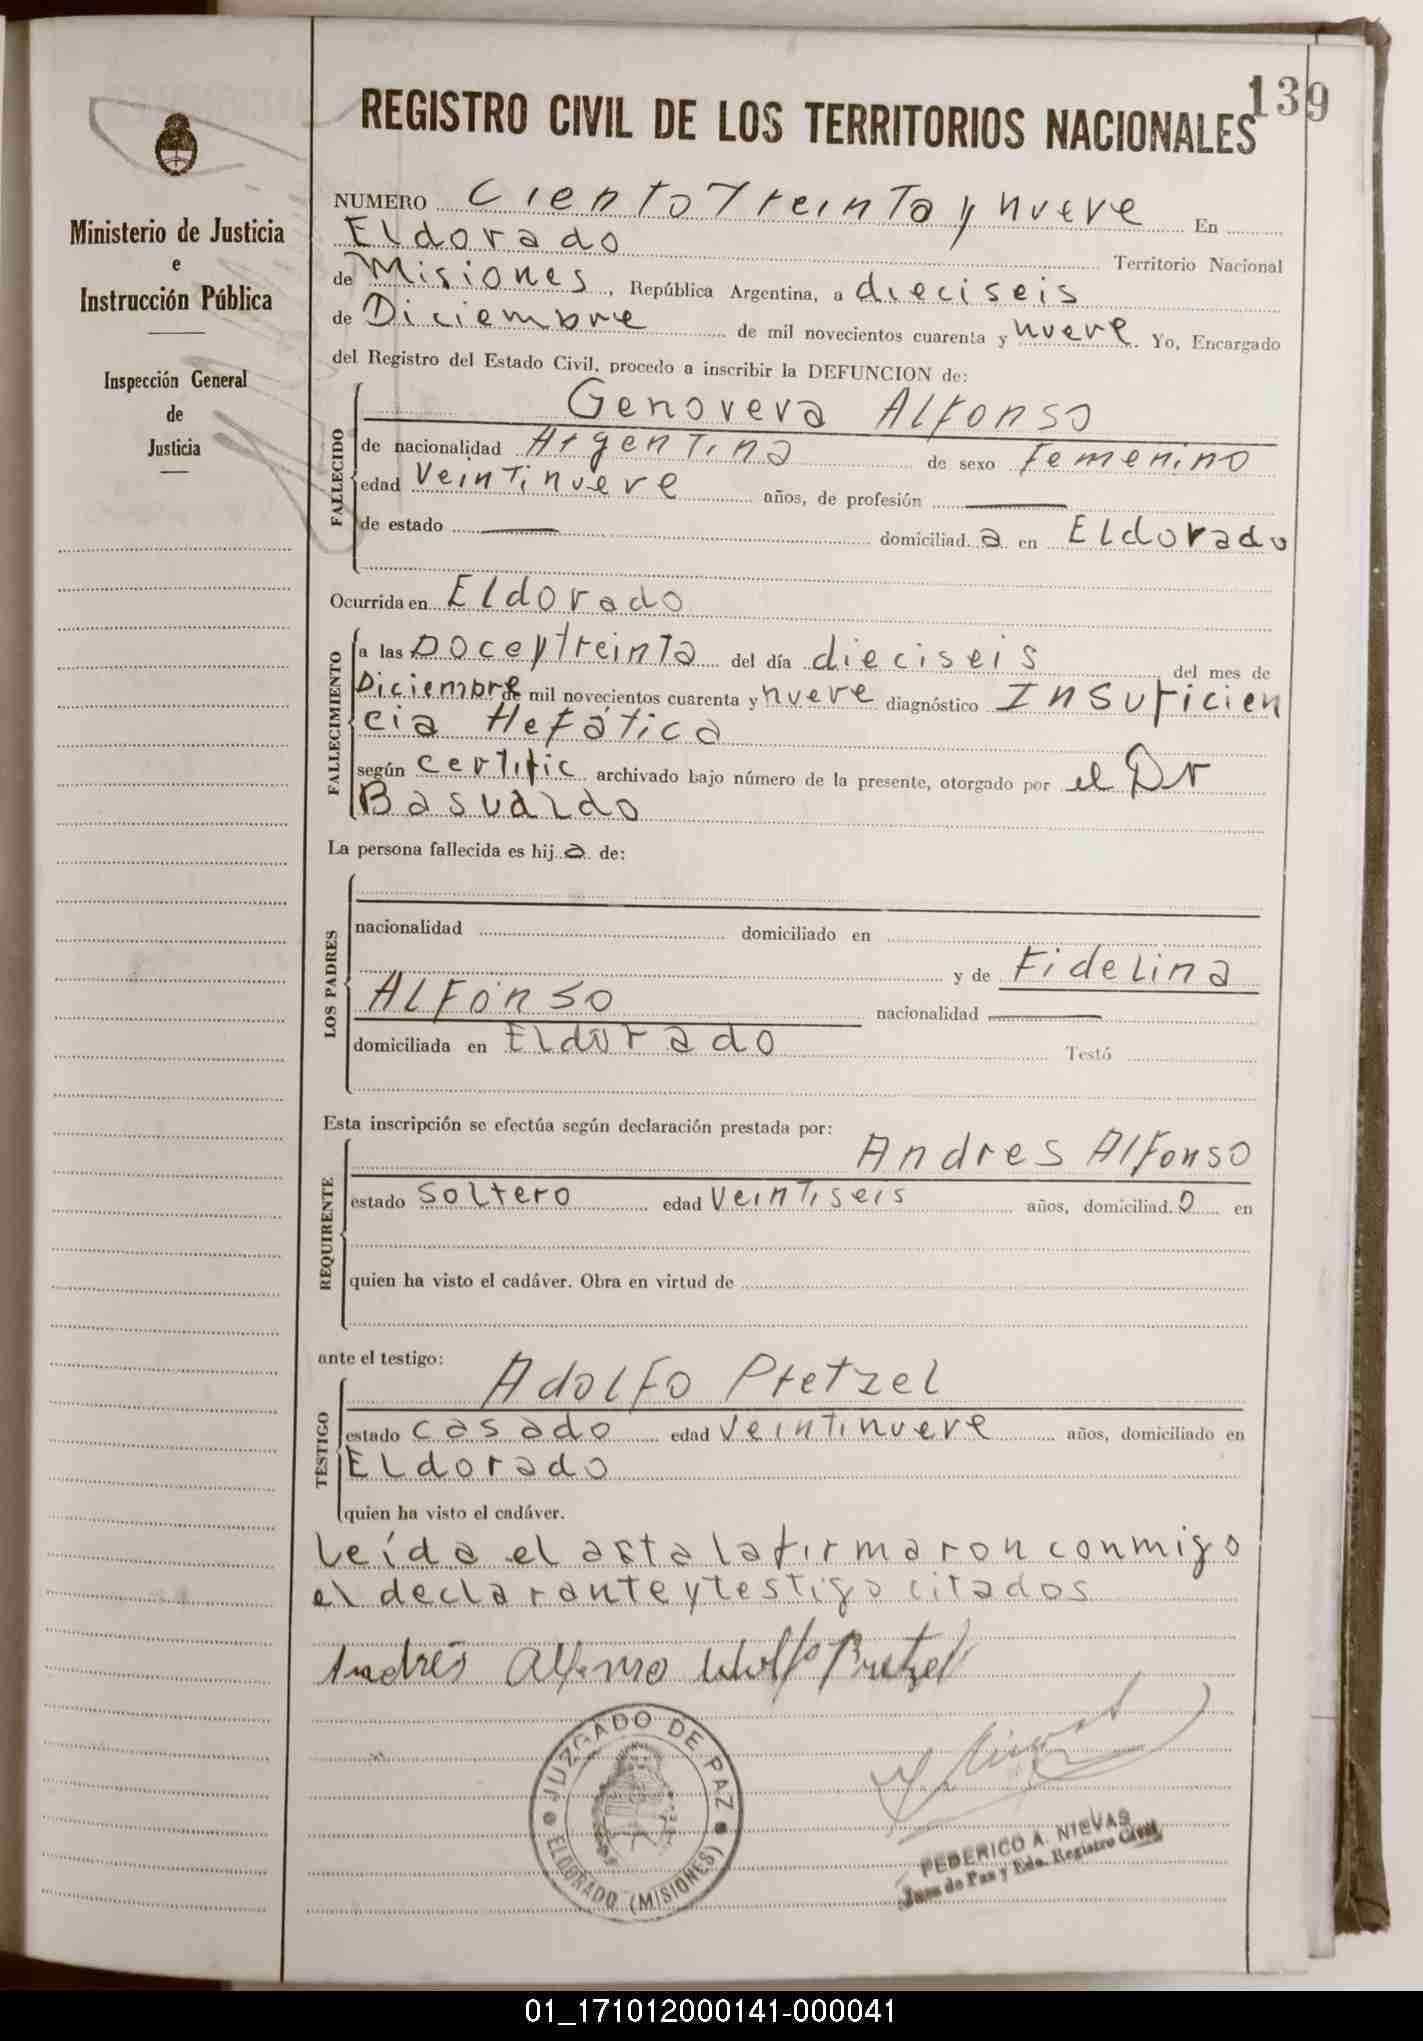 139
REGISTRO CIVIL DE LOS TERRITORIOS NACIONALES
Ministerio de Justicia
e
Instrucción Pública
Inspección General
de
Justicia
NUMERO Ciento Treinta y nueve En
Eldorado Territorio Nacional
de Misiones, República Argentina, a dieciseis
de Diciembre de mil novecientos cuarenta y nueve. Yo, Encargado
del Registro del Estado Civil, procedo a inscribir la DEFUNCION de:
FALLECIDO
Genoveva Alfonso
de nacionalidad Argentina de sexo Femenino
edad Veintinueve años, de profesión
de estado domiciliad a en Eldorado
Ocurrida en Eldorado
FALLECIMIENTO
a las Doce y treinta del día dieciseis del mes de
Diciembre de mil novecientos cuarenta y nueve diagnóstico Insuficien
cia Hefática
según certific archivado bajo número de la presente, otorgado por el Dr
Basualdo
La persona fallecida es hij a de:
LOS PADRES
nacionalidad domiciliado en
y de Fidelina
Alfonso nacionalidad
domiciliada en Eldorado Testó
Esta inscripción se efectúa según declaración prestada por:
REQUIRENTE
Andres Alfonso
estado soltero edad Veintiseis años, domiciliad o en
quien ha visto el cadáver. Obra en virtud de
ante el testigo:
TESTIGO
Adolfo Pretzel
estado casado edad Veintinueve años, domiciliado en
Eldorado
quien ha visto el cadáver.
Leída el acta la firmaron conmigo
el declarante y testigo citados
Andrés Alfonso Adolfo Pretzel
JUZGADO DE PAZ
ELDORADO (MISIONES)
FEDERICO A. NIEVAS
Juez de Paz y Edo. Registro Civil
01_171012000141-000041